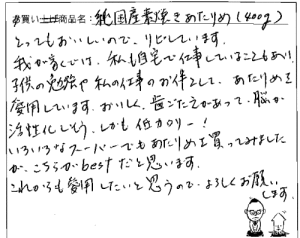 お買い上げ商品名：純国産素焼きあたりめ(400g)
とってもおいしいので、リピしています。
我が家では、私も自宅で仕事していることもあり
子供の勉強や私の仕事のお伴として、あたりめを
愛用しています。おいしく、歯ごたえがあって、脳が
活性化しそう。しかも低カロリー！
いろいろなスーパーでもあたりめを買ってみました
が、こちらがbestだと思います。
これからも愛用したいと思うので、よろしくお願い
します。